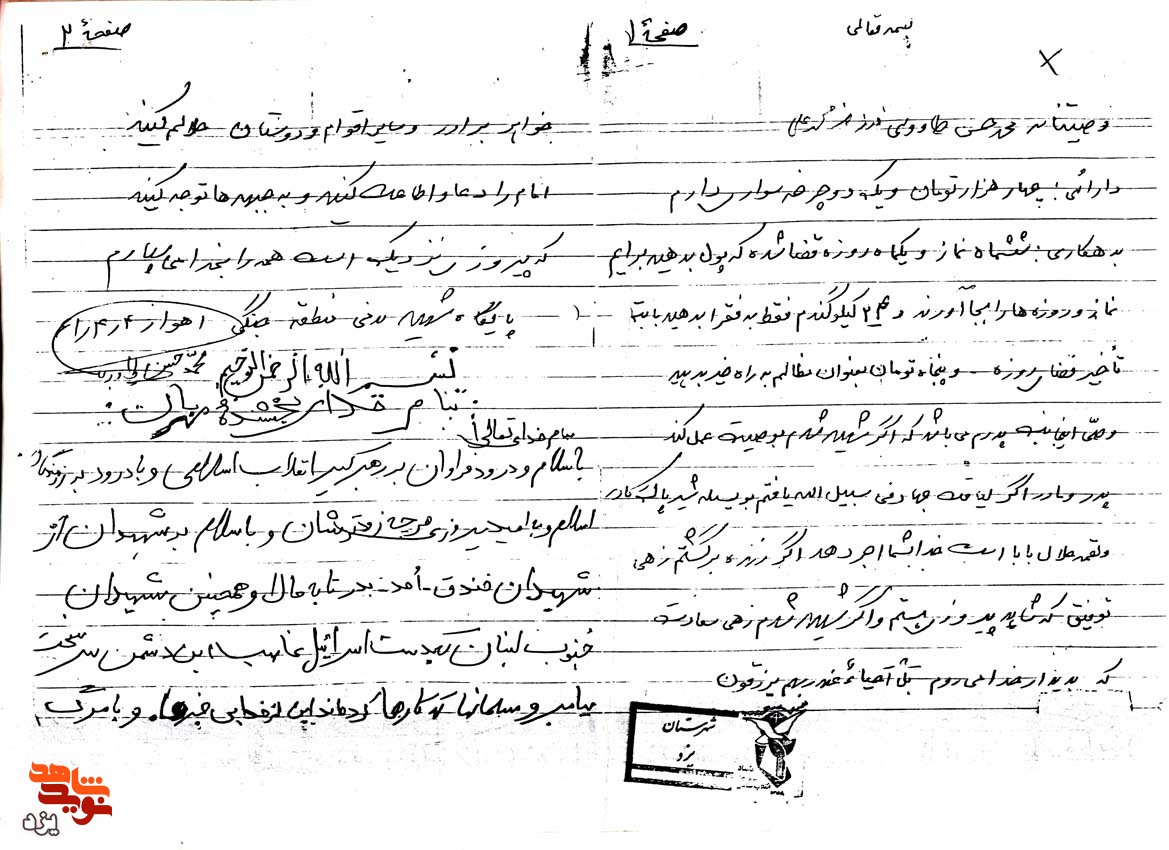 بسمه تعالی
صفحهٔ ۱
وصیتنامه محمدحسن طاووسی فرزند
دارائی: چهار هزار تومان و یک دوچرخه سواری دارم
بدهکاری: ششماه نماز و یکماه روزه قضا شده که پول بدهید برایم
نماز و روزه ها را بجا آورند و کیلو گندم فقط به فقرا بدهید بابت
تأخیر قضای روزه و پنجاه تومان بعنوان مظالم به راه خیر بدهید
وصی اینجانب پدرم می باشد که اگر شهید شدم بوصیت عمل کند
پدر و مادر اگر لیاقت جهاد فی سبیل الله یافتم بوسیله شیر پاک مادر
و لقمه حلال بابا است خدا بشما اجر دهد اگر زنده برگشتم زهی
توفیق که شاید پیروز نیستم و اگر شهید شدم زهی سعادت
که بدیدار خدا می روم بل أحیاءٌ عند ربهم یرزقون
شهرستان
یزد
صفحهٔ ۲
خواهر برادر و سایر اقوام و دوستان حلالم کنید
امام را دعا و اطاعت کنید و به جبهه ها توجه کنید
که پیروزی نزدیک است همه را بخدا می سپارم
پایگاه شهید مدنی منطقه جنگی اهواز
محمد حسن
بسم الله الرحمن الرحیم
بنام خدای بخشنده مهربان
بنام خدای تعالی
با سلام و درود فراوان بر رهبر کبیر انقلاب اسلامی و با درود بر رزمندگان
اسلام و به امید پیروزی هر چه زودترشان و با سلام بر شهیدان از
شهیدان خندق - احد - بدر تا به حال و همچنین شهیدان
جنوب لبنان که بدست اسرائیل غاصب این دشمن سرسخت
پیامبر و مسلمانها که کارها کرده اند این از خدایی خبرها. و با مرگ
نوید شاهد
یزد